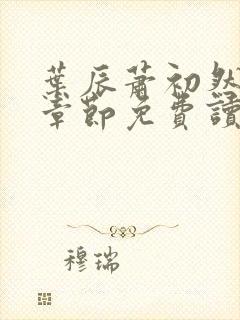 葉辰蕭初然
章節免費讀
穆瑞